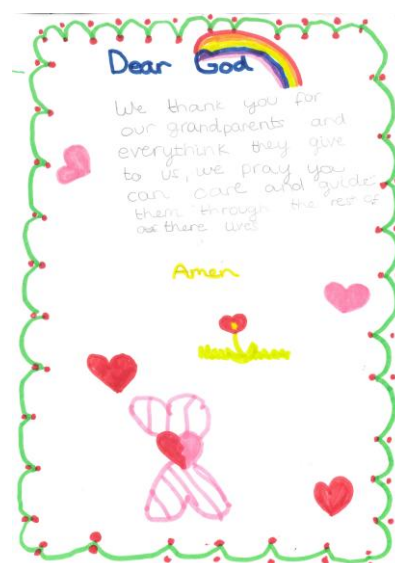 Dear God
We thank you for
our grandparents and
everythink they give
to us, we pray you
can care and guide
them through the rest of
there lives
Amen